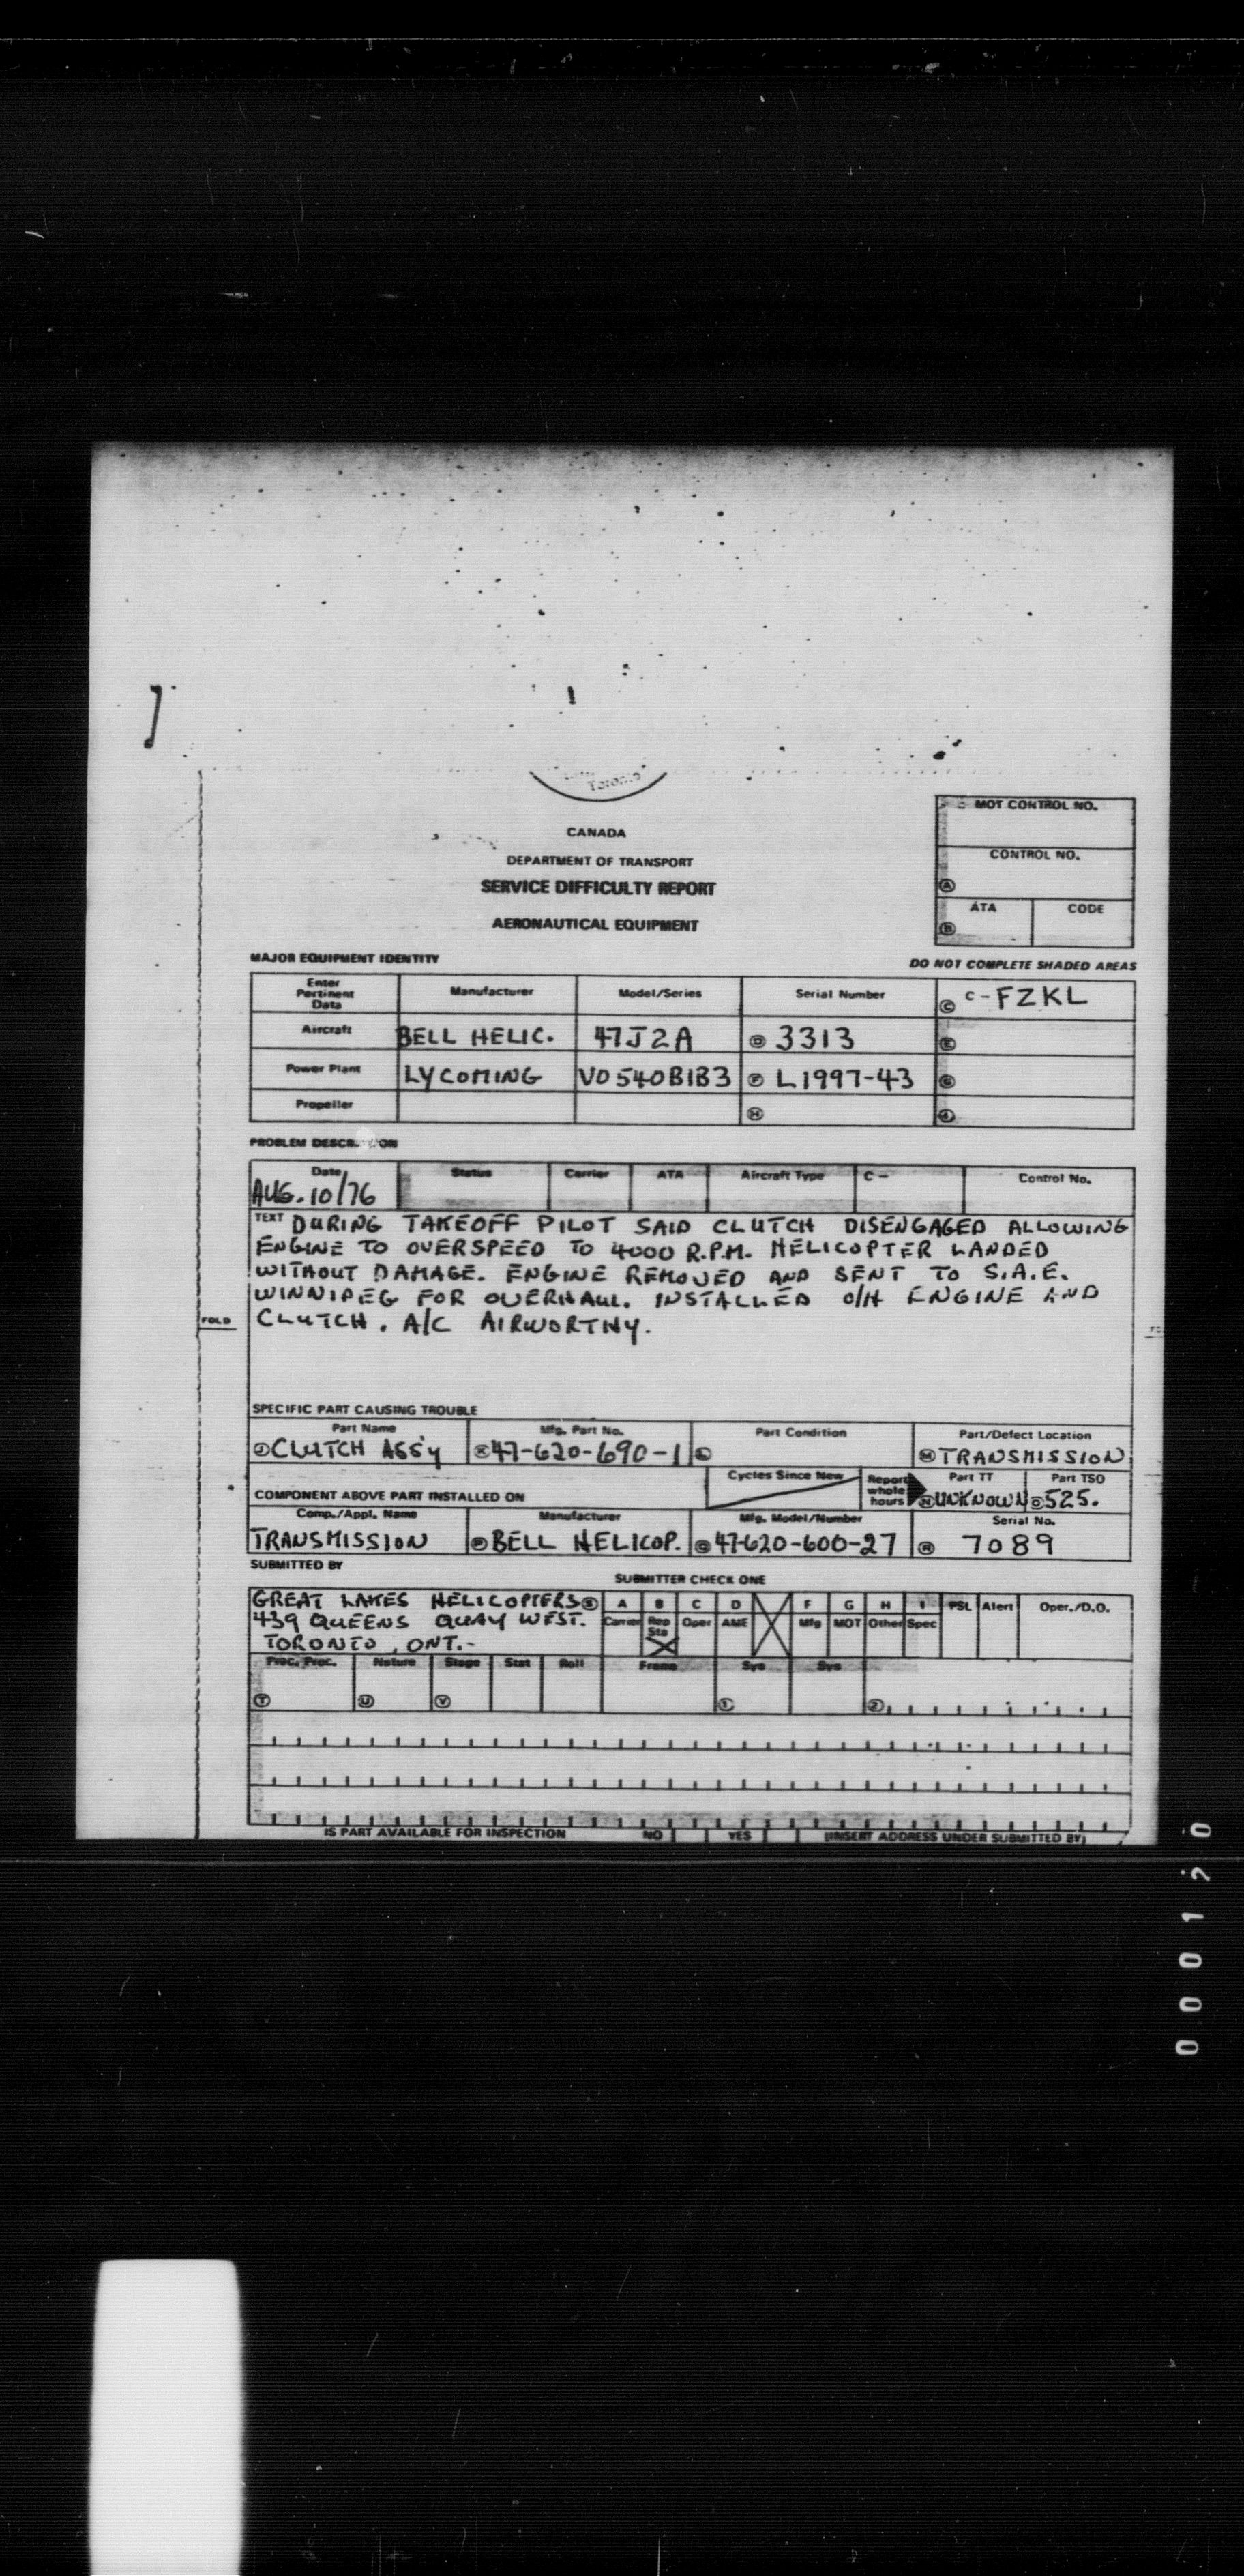 Toronto
CANADA
DEPARTMENT OF TRANSPORT
SERVICE DIFFICULTY REPORT
AERONAUTICAL EQUIPMENT
MOT CONTROL NO.
CONTROL NO.
A
ATA CODE
B
MAJOR EQUIPMENT IDENTITY DO NOT COMPLETE SHADED AREAS
Enter Pertinent Data Manufacturer Model/Series Serial Number C C-FZKL
Aircraft BELL HELIC. 47J2A D 3313 E
Power Plant LYCOMING VO540B1B3 F L1997-43 G
Propeller H
PROBLEM
Date Status Carrier ATA Aircraft Type C- Control No.
AUG. 10/76
TEXT DURING TAKEOFF PILOT SAID CLUTCH DISENGAGED ALLOWING
ENGINE TO OVERSPEED TO 4000 R.P.M. HELICOPTER LANDED
WITHOUT DAMAGE. ENGINE REMOVED AND SENT TO S.A.E.
WINNIPEG FOR OVERHAUL. INSTALLED O/H ENGINE AND
CLUTCH. A/C AIRWORTHY.
FOLD
SPECIFIC PART CAUSING TROUBLE
Part Name Mfg. Part No. Part Condition Part/Defect Location
J CLUTCH ASS'Y K 47-620-690-1 L M TRANSMISSION
Cycles Since New Report whole hours Part TT Part TSO
COMPONENT ABOVE PART INSTALLED ON N UNKNOWN O 525.
Comp./Appl. Name Manufacturer Mfg. Model/Number Serial No.
TRANSMISSION P BELL HELICOP. Q 47-620-600-27 R 7089
SUBMITTED BY SUBMITTER CHECK ONE
GREAT LAKES HELICOPTERS S A B C D F G H I PSL Alert Oper./D.O.
439 QUEENS QUAY WEST. Carrier Rep Sta Oper AME Mfg MOT Other Spec
TORONTO, ONT.-
Prec. Proc. Nature Stage Stat Roll Frame Sys Sys
T U V 1 2
IS PART AVAILABLE FOR INSPECTION NO YES (INSERT ADDRESS UNDER SUBMITTED BY)